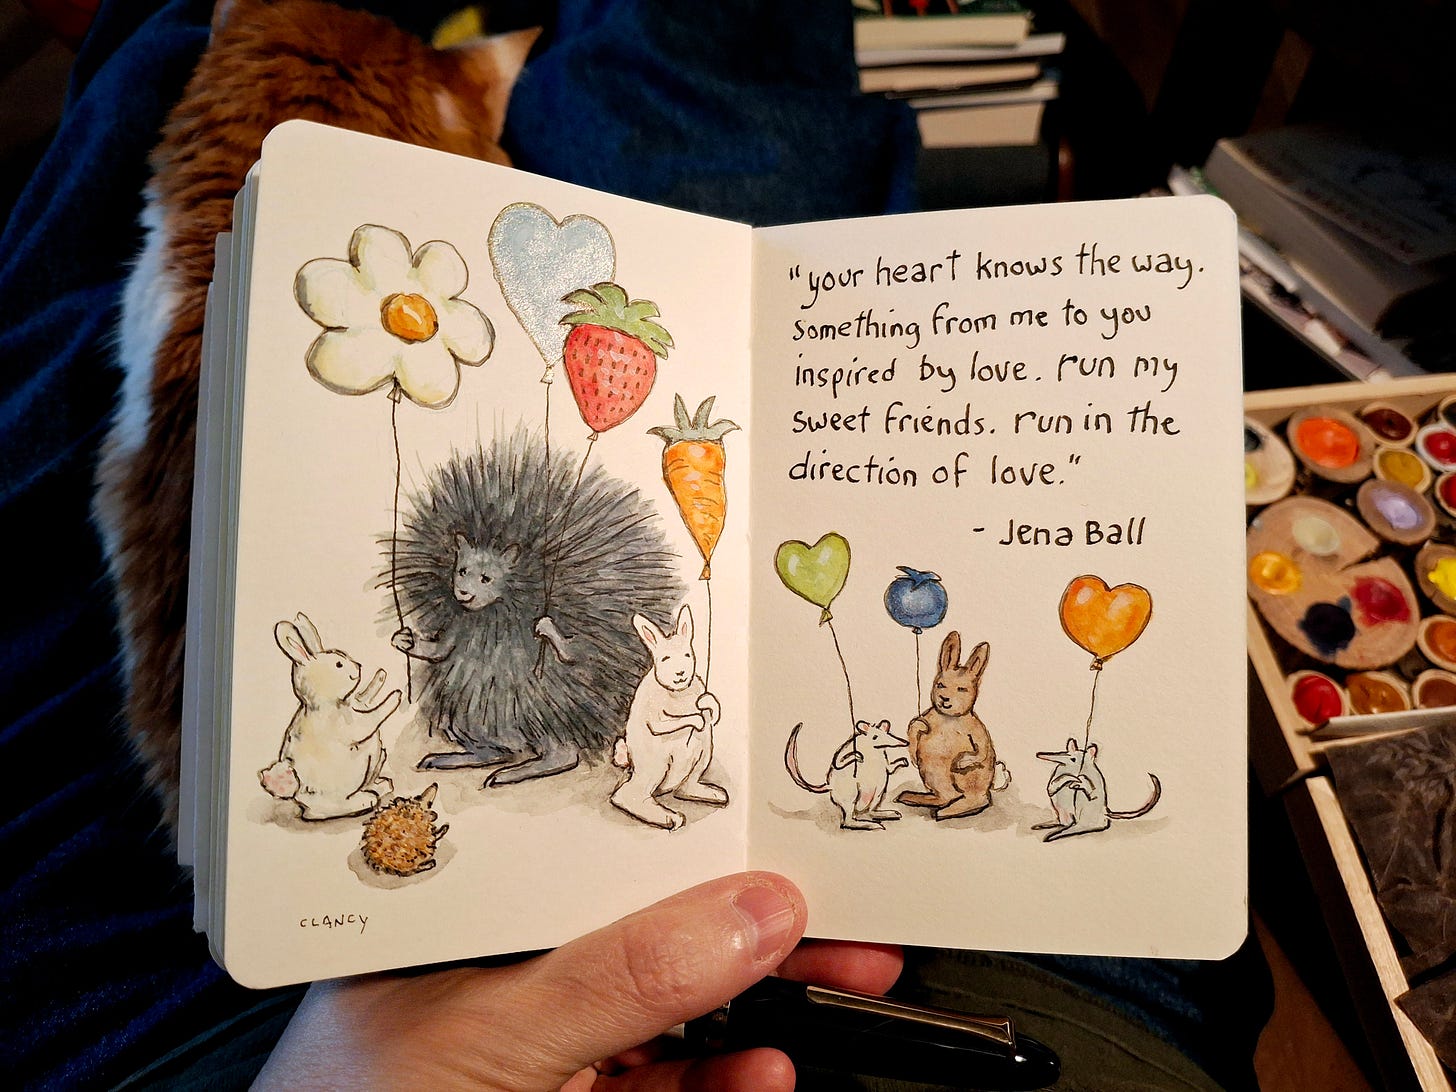 CLANCY
"your heart knows the way.
something from me to you
inspired by love. run my
sweet friends. run in the
direction of love."
- Jena Ball